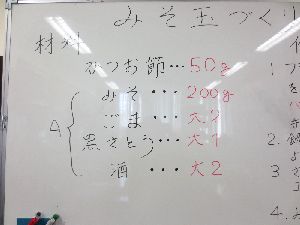 みそ玉づくり
材料
かつお節…50g
A
みそ…200g
ごま…大2
黒さとう…大1
酒…大2
1.
2.
3
4.